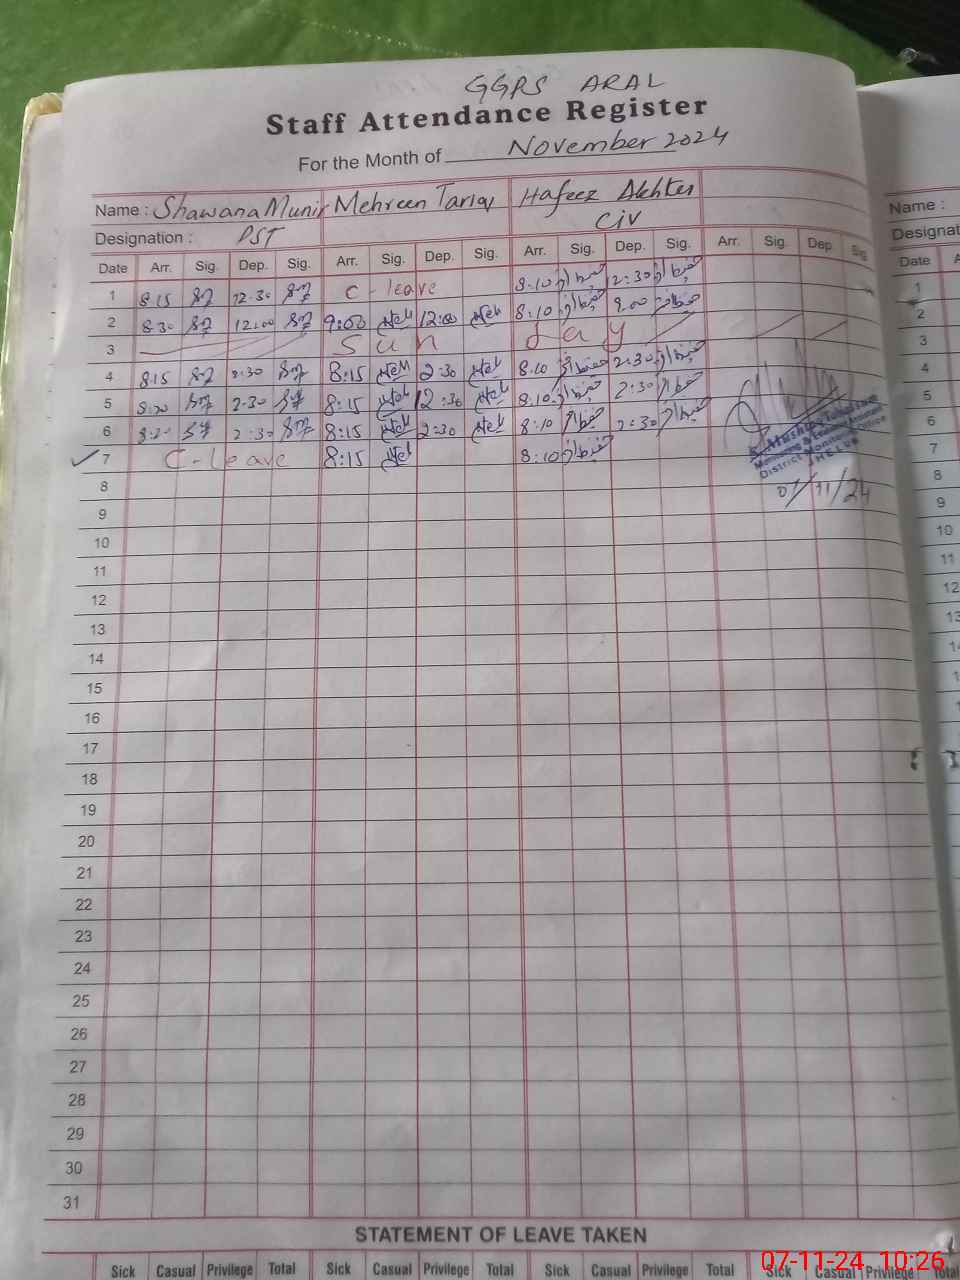 GGPS ARAL
Staff Attendance Register
For the Month of November 2024
Name : Shawana Munir Mehreen Tariq Hafeez Akhter Name :
Designation : PST Civ
Date Arr. Sig. Dep. Sig. Arr. Sig. Dep. Sig. Arr. Sig. Dep. Sig. Arr. Sig. Dep. Sig. Date
1 8:15 12:30 C-leave 8:10 12:30 1
2 8:30 12:00 9:00 12:00 8:10 2
3 Sun day 3
4 8:15 2:30 8:15 2:30 8:10 2:30 4
5 8:20 2:30 8:15 12:30 8:10 2:30 5
6 8:20 2:30 8:15 2:30 8:10 2:30 6
7 C-leave 8:15 8:10 7
District Monitoring Office
JHELUM
07/11/24
8 8
9 9
10 10
11 11
12 12
13
14
15
16
17
18
19
20
21
22
23
24
25
26
27
28
29
30
31
STATEMENT OF LEAVE TAKEN
Sick Casual Privilege Total Sick Casual Privilege Total Sick Casual Privilege Total Sick Casual Privilege Total
07-11-24 10:26